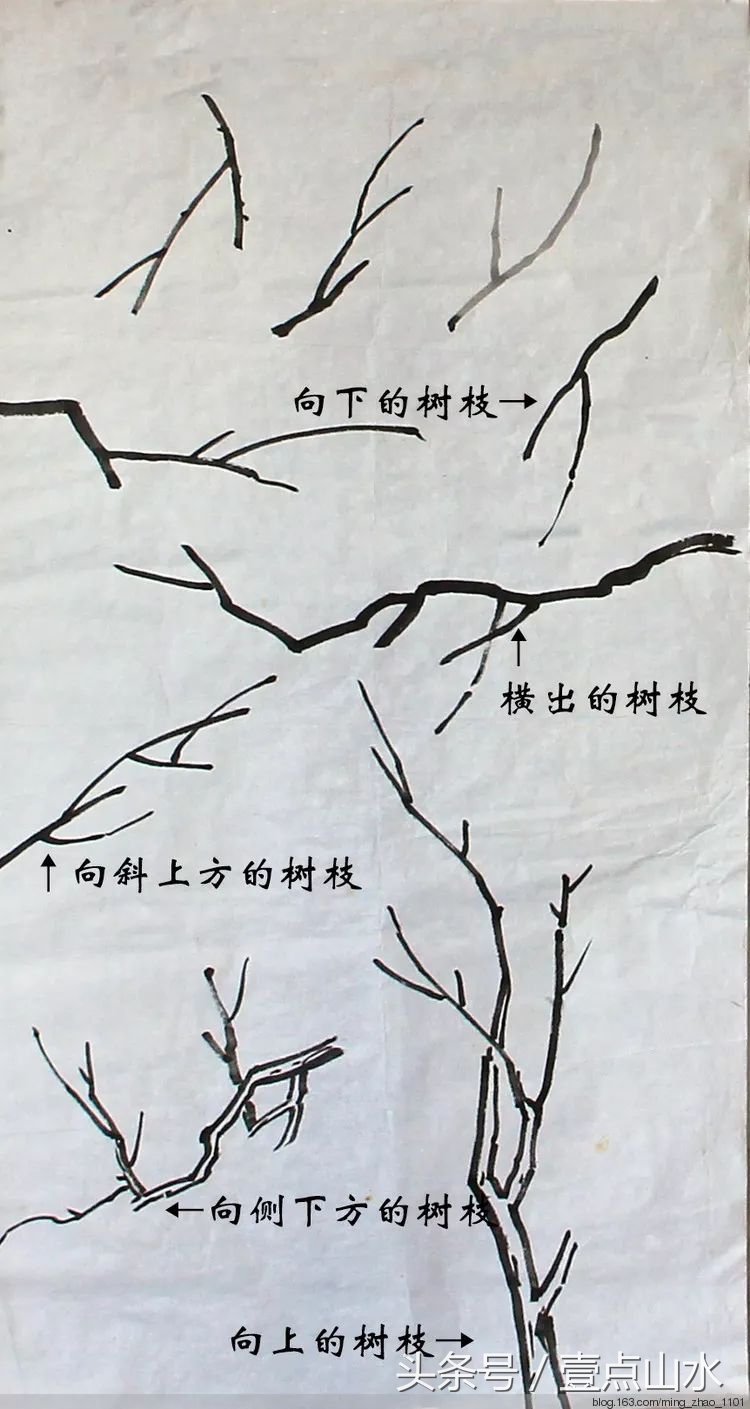 向下的树枝→
横出的树枝
向斜上方的树枝
←向侧下方的树枝
向上的树枝→
头条号/壹点山水
blog.163.com/ming_zhao_1101